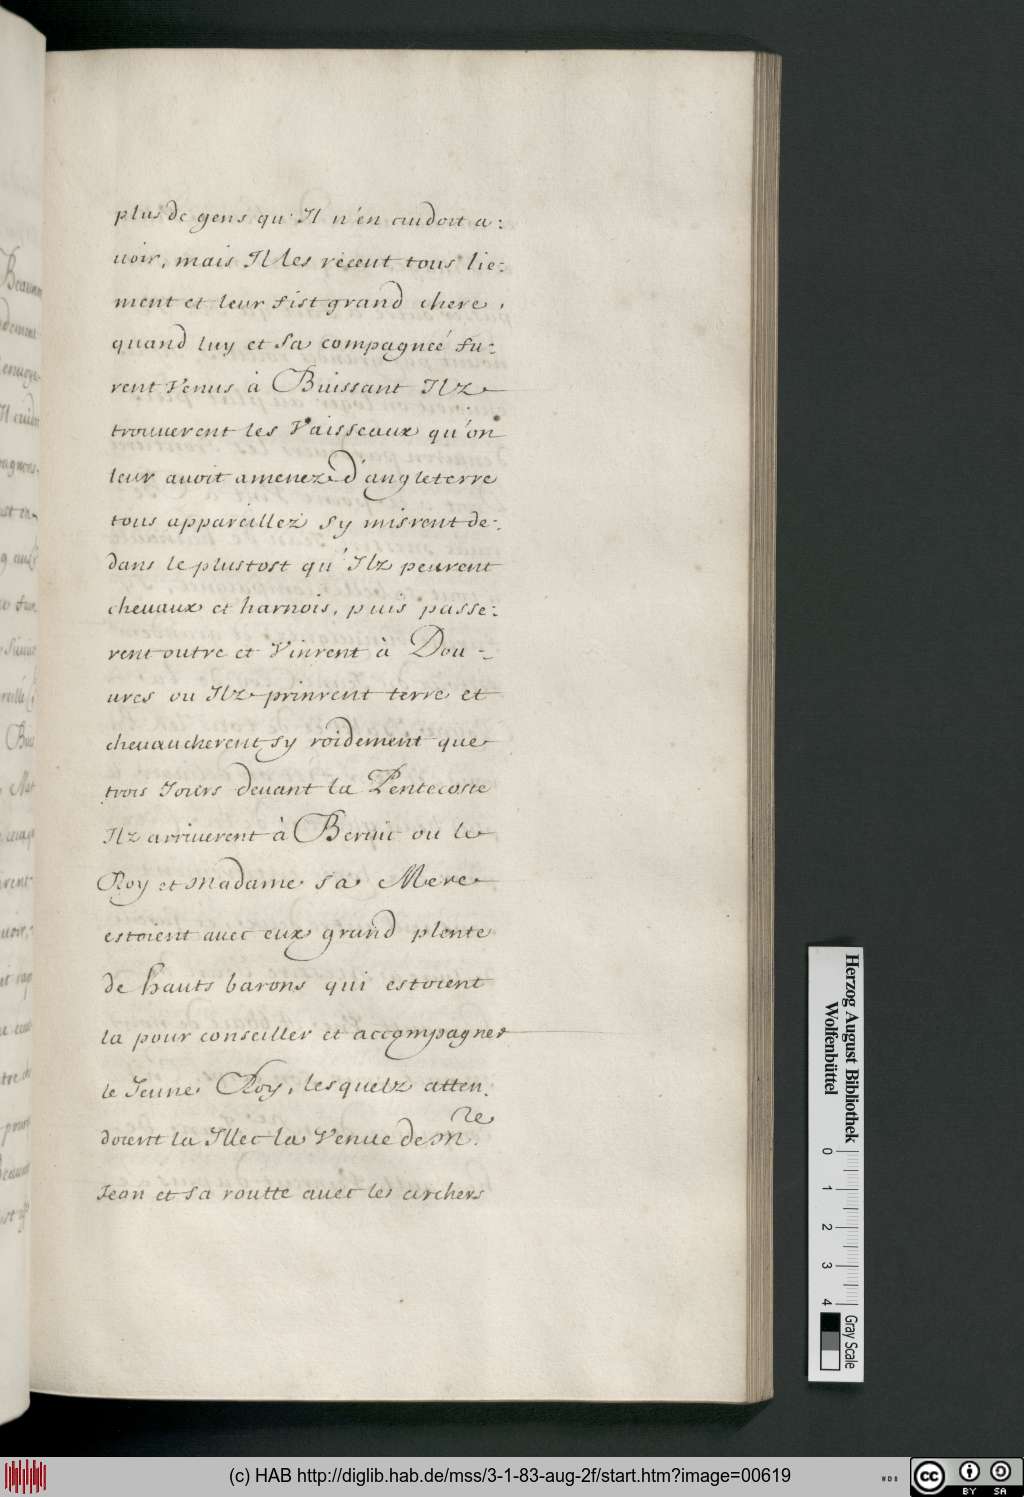 plus de gens qu' Il n'en cuidoit a:
uoir, mais Il les receut tous lie:
ment et leur fist grand chere,
quand luy et sa compagneé fu:
rent venus à Buissant Ilz
trouuerent les Vaisseaux qu'on
leur auoit amenez d'angleterre
tous appareillez sy misrent de:
dans le plustost qu' Ilz peurent
cheuaux et harnois, puis passe:
rent outre et vinrent à Dou-:
ures ou Ilz prinrent terre et
cheuaucherent sy roidement que
trois Jours deuant la Pentecoste
Ilz arriuerent à Beruic ou le
Roy et madame sa Mere
estoient auec eux grand plente
de hauts barons qui estoient
la pour conseiller et accompagner
le Jeune Roy, lesquelz atten.
doient la Illec la venue de m.re
Jean et sa routte auec les archers
Herzog August Bibliothek
Wolfenbüttel
0 1 2 3 4
Gray Scale
(c) HAB http://diglib.hab.de/mss/3-1-83-aug-2f/start.htm?image=00619
WDB
cc BY SA